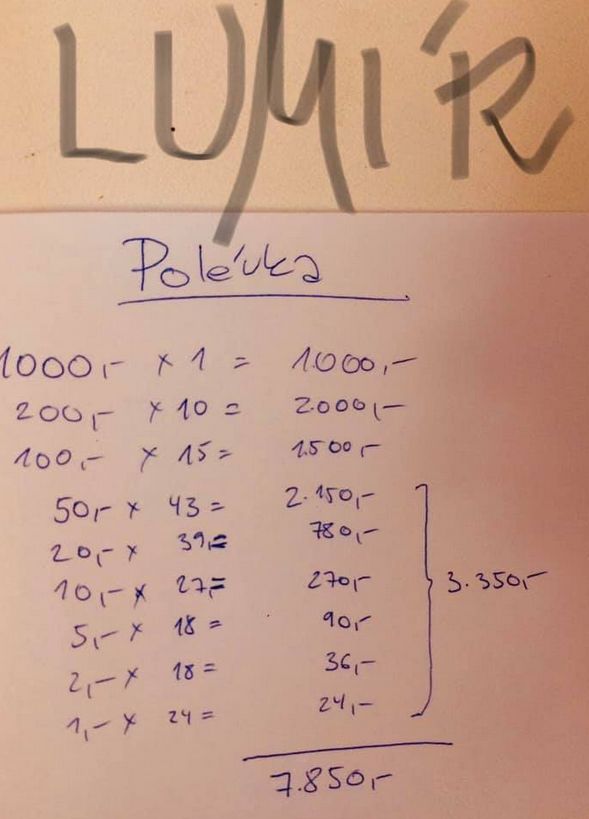 LUMÍR
Polévka
1000,- x 1 = 1.000,-
200,- x 10 = 2.000,-
100,- x 15 = 1.500,-
50,- x 43 = 2.150,-
20,- x 39,= 780,-
10,- x 27,= 270,-
5,- x 18 = 90,-
2,- x 18 = 36,-
1,- x 24 = 24,-
3.350,-
7.850,-